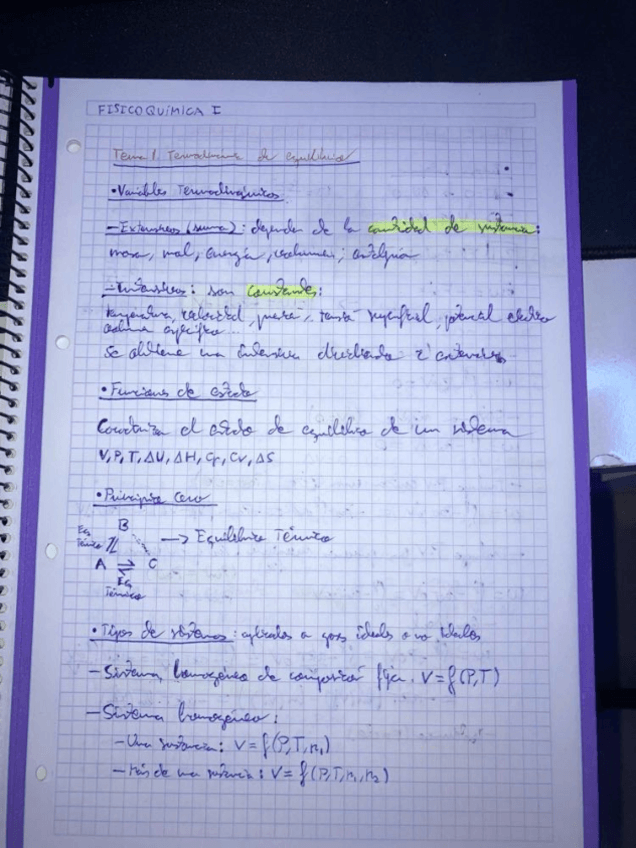 FISICOQUÍMICA I
Tema 1. Termodinámica de equilibrio
• Variables Termodinámicas
- Extensivas (suma): dependen de la cantidad de sustancia:
masa, mol, energía, volumen, entalpía
- Intensivas: son constantes:
temperatura, velocidad, presión, tensión superficial, potencial eléctrico
se obtiene una intensiva dividiendo 2 extensivas
• Funciones de estado
Caracteriza el estado de equilibrio de un sistema
V, P, T, ΔU, ΔH, Cp, Cv, ΔS
• Principio Cero
B
Eq Térmico
A ⇌ C → Equilibrio Térmico
Eq
Térmico
• Tipos de sistemas: aplicados a gases ideales o no ideales
- Sistema homogéneo de composición fija. V = f(P,T)
- Sistema homogéneo:
- Una sustancia: V = f(P,T,n₁)
- Más de una sustancia: V = f(P,T,n₁,n₂)